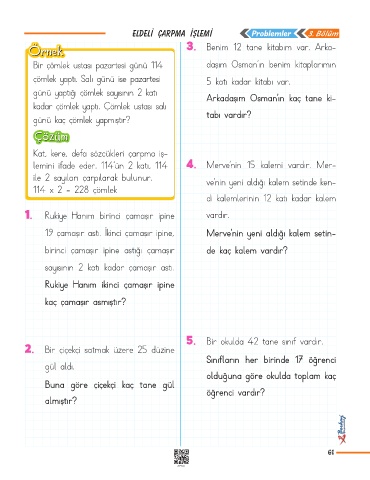 ELDELİ ÇARPMA İŞLEMİ
Problemler
3. Bölüm
Örnek
Bir çömlek ustası pazartesi günü 114
çömlek yaptı. Salı günü ise pazartesi
günü yaptığı çömlek sayısının 2 katı
kadar çömlek yaptı. Çömlek ustası salı
günü kaç çömlek yapmıştır?
Çözüm
Kat, kere, defa sözcükleri çarpma iş-
lemini ifade eder. 114'ün 2 katı, 114
ile 2 sayıları çarpılarak bulunur.
114 x 2 = 228 çömlek
1. Rukiye Hanım birinci çamaşır ipine
19 çamaşır astı. İkinci çamaşır ipine,
birinci çamaşır ipine astığı çamaşır
sayısının 2 katı kadar çamaşır astı.
Rukiye Hanım ikinci çamaşır ipine
kaç çamaşır asmıştır?
2. Bir çiçekçi satmak üzere 25 düzine
gül aldı.
Buna göre çiçekçi kaç tane gül
almıştır?
3. Benim 12 tane kitabım var. Arka-
daşım Osman'ın benim kitaplarımın
5 katı kadar kitabı var.
Arkadaşım Osman'ın kaç tane ki-
tabı vardır?
4. Merve'nin 15 kalemi vardır. Mer-
ve'nin yeni aldığı kalem setinde ken-
di kalemlerinin 12 katı kadar kalem
vardır.
Merve'nin yeni aldığı kalem setin-
de kaç kalem vardır?
5. Bir okulda 42 tane sınıf vardır.
Sınıfların her birinde 17 öğrenci
olduğuna göre okulda toplam kaç
öğrenci vardır?
61